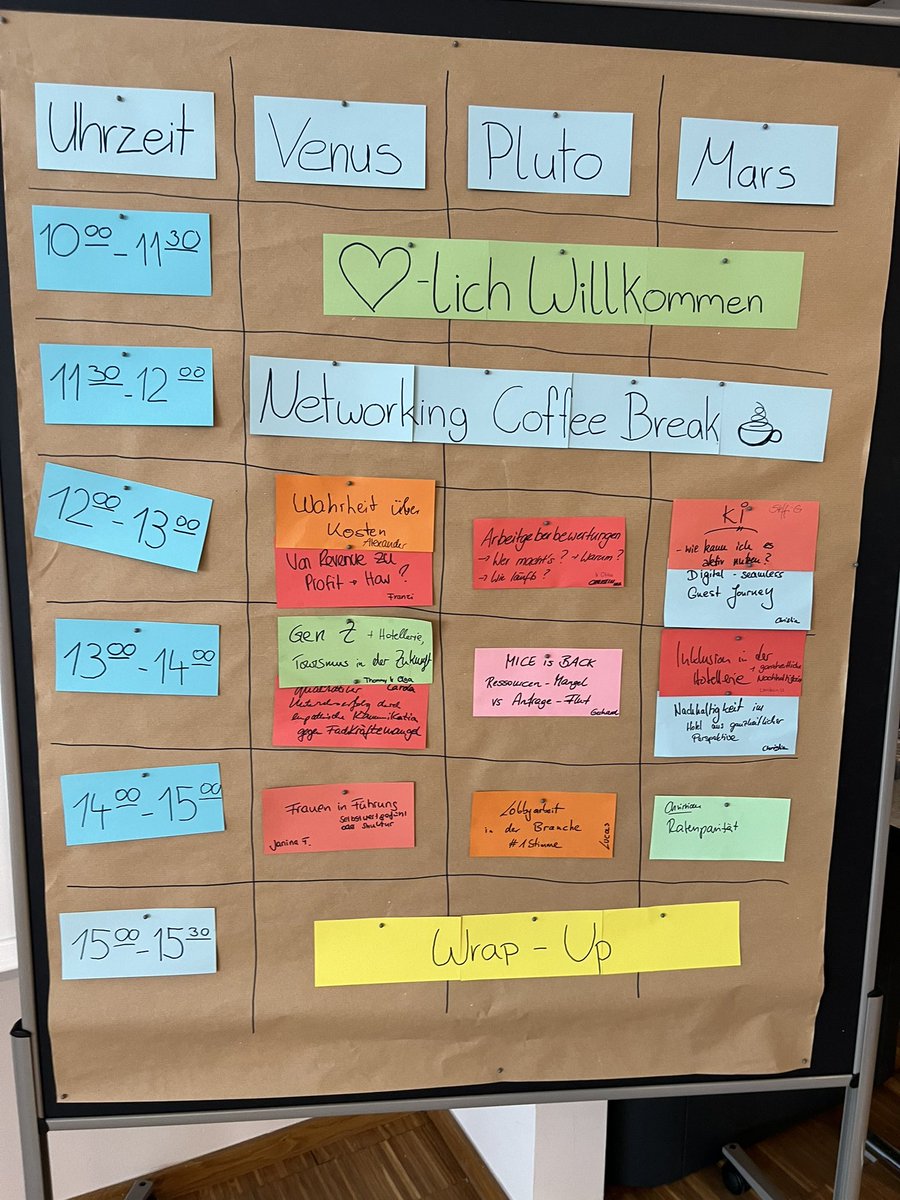 Uhrzeit
Venus
Pluto
Mars
10 00 - 11 30
♡-lich Willkommen
11 30 - 12 00
Networking Coffee Break
12 00 - 13 00
Wahrheit über
Kosten
Alexander
Von Revenue zu
Profit → How?
Franzi
Arbeitgeberbewertungen
→ Wer macht's? → Warum?
→ Wie läufts?
KI
Steffi G
- wie kann ich es
aktiv nutzen?
Digital - seamless
Guest Journey
Christin
13 00 - 14 00
Gen Z + Hotellerie,
Tourismus in der Zukunft
Thommy & Olga
Carola
durch
empathische Kommunikation
gegen Fachkräftemangel
MICE is BACK
Ressourcen - Mangel
vs Anfrage - Flut
Gerhard
Inklusion in der
Hotellerie + ganzheitliche
Nachhaltigkeit
Nachhaltigkeit im
Hotel aus ganzheitlicher
Perspektive
Christin
14 00 - 15 00
Frauen in Führung
Selbstwertgefühl
oder Struktur
Janina F.
Lobbyarbeit
in der Branche
#1Stimme
Lucas
Christian
Ratenparität
15 00 - 15 30
Wrap - Up